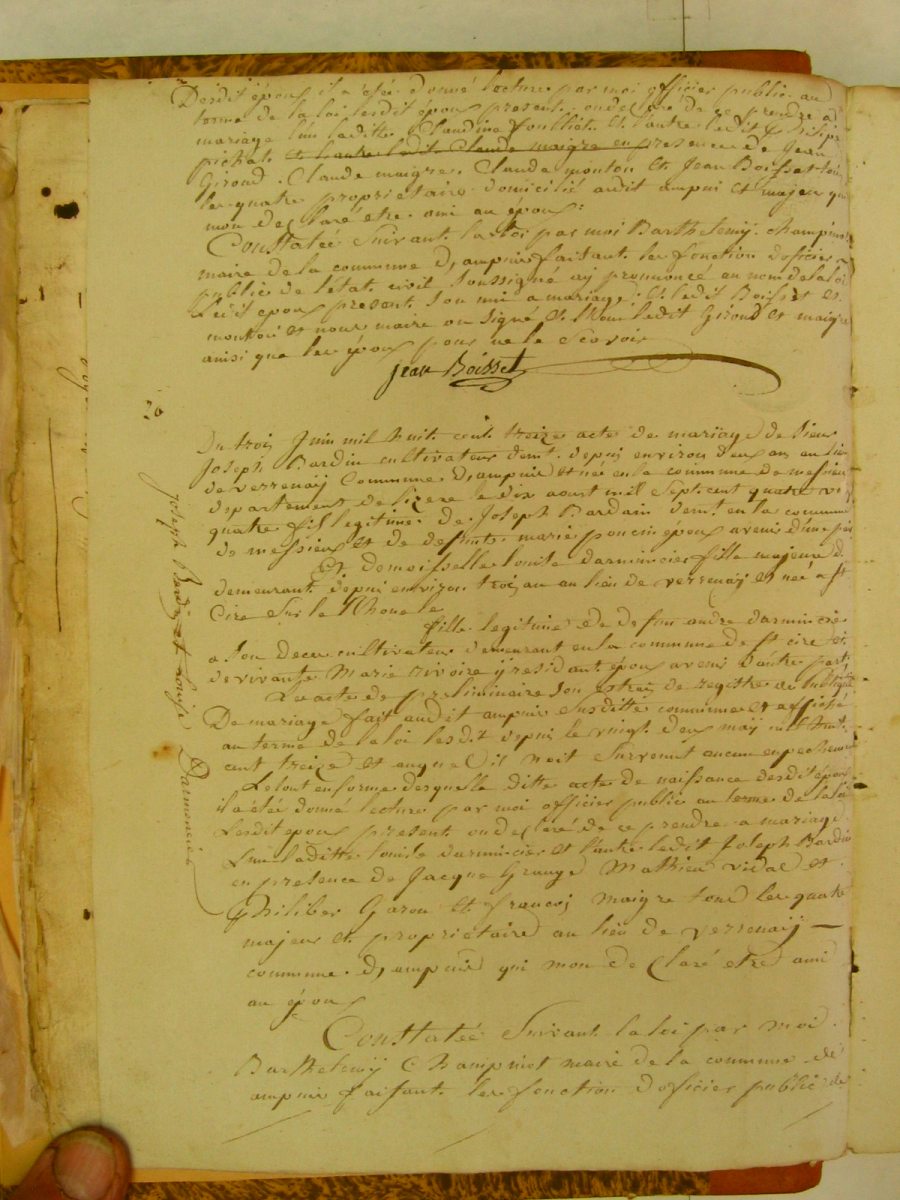 Desdit époux il a été donné lecture par moi officier public au
terme de la loi lesdit époux present on declaré de ce prendre a
mariage l'un laditte Claudine foulliet et l'autre ledit
pichat et l'autre ledit Claude maigre en presence de Jean
Giroud. Claude maigre. Claude monton et Jean Boisset tous
les quatre propriétaire domicilié audit ampui et majeur qui
mon declaré etre ami au époux:
Consttatée suivant la loi par moi Barthelemÿ Champinot
maire de la commune d,ampuis faisant les fonction d'oficier
public de l'état civil soussigné aÿ prononcé au nom de la loi
ledit epoux present son unie a mariage; et ledit Boisset et
monton et nous maire on signé et Non ledit Giroud et maigre
ainsi que les époux pour ne le scavoir
jean Boisset
20
Du trois Juin mil huit cent treize acte de mariage de sieur
Joseph Bardin cultivateur demt. depui environ deux ans au lieu
de verrenaÿ Commune d,ampuid et né en la commune de messieu
departement de lizere le dix aoust mil sept cent quatre vi
quatre fil legitime de Joseph Bardain demt en la commune
de messieux et de defunte marie poncin époux avenir d'une par
Et demoisselle louise darmincier fille majeure d.
demeurant depui environ troi an au lieu de verrenaÿ et née a st
Cire sur le Rhone le
fille legitime de defun andre darmincié
a son deces cultivateur demeurant en la commune de st cire et
de vivante Marie rivoire ÿ residant époux avenir d'autre part
Les acte de preliminaire son extrai de registre de publiqua
De mariage fait audit ampuis susditte commune et affiché
au terme de la loi lesdit depui le vingt deux maÿ mil huit
cent treize et auquel il n'oit survenut aucun enpechement
Le tout en forme desquelle ditte acte de naissance desdit époux
il a été donné lecture par moi officier public au terme de la loi
Lesdit epoux present on declaré de ce prendre a mariage
L'un laditte louise darmincier et l'autre ledit Joseph Bardin
en presence de Jacque Grange Mathieu vidal et
Philiber Garon et francoi maigre tous les quatre
majeur et propriétaire au lieu de verrenaÿ —
commune d,ampuid qui mon declaré etre ami
au époux
Consttatée suivant la loi par moi
Barthelemÿ Champinot maire de la commune de
ampuis faisant les fonction d'oficier public de
Joseph Bardin et Louise Darmencier